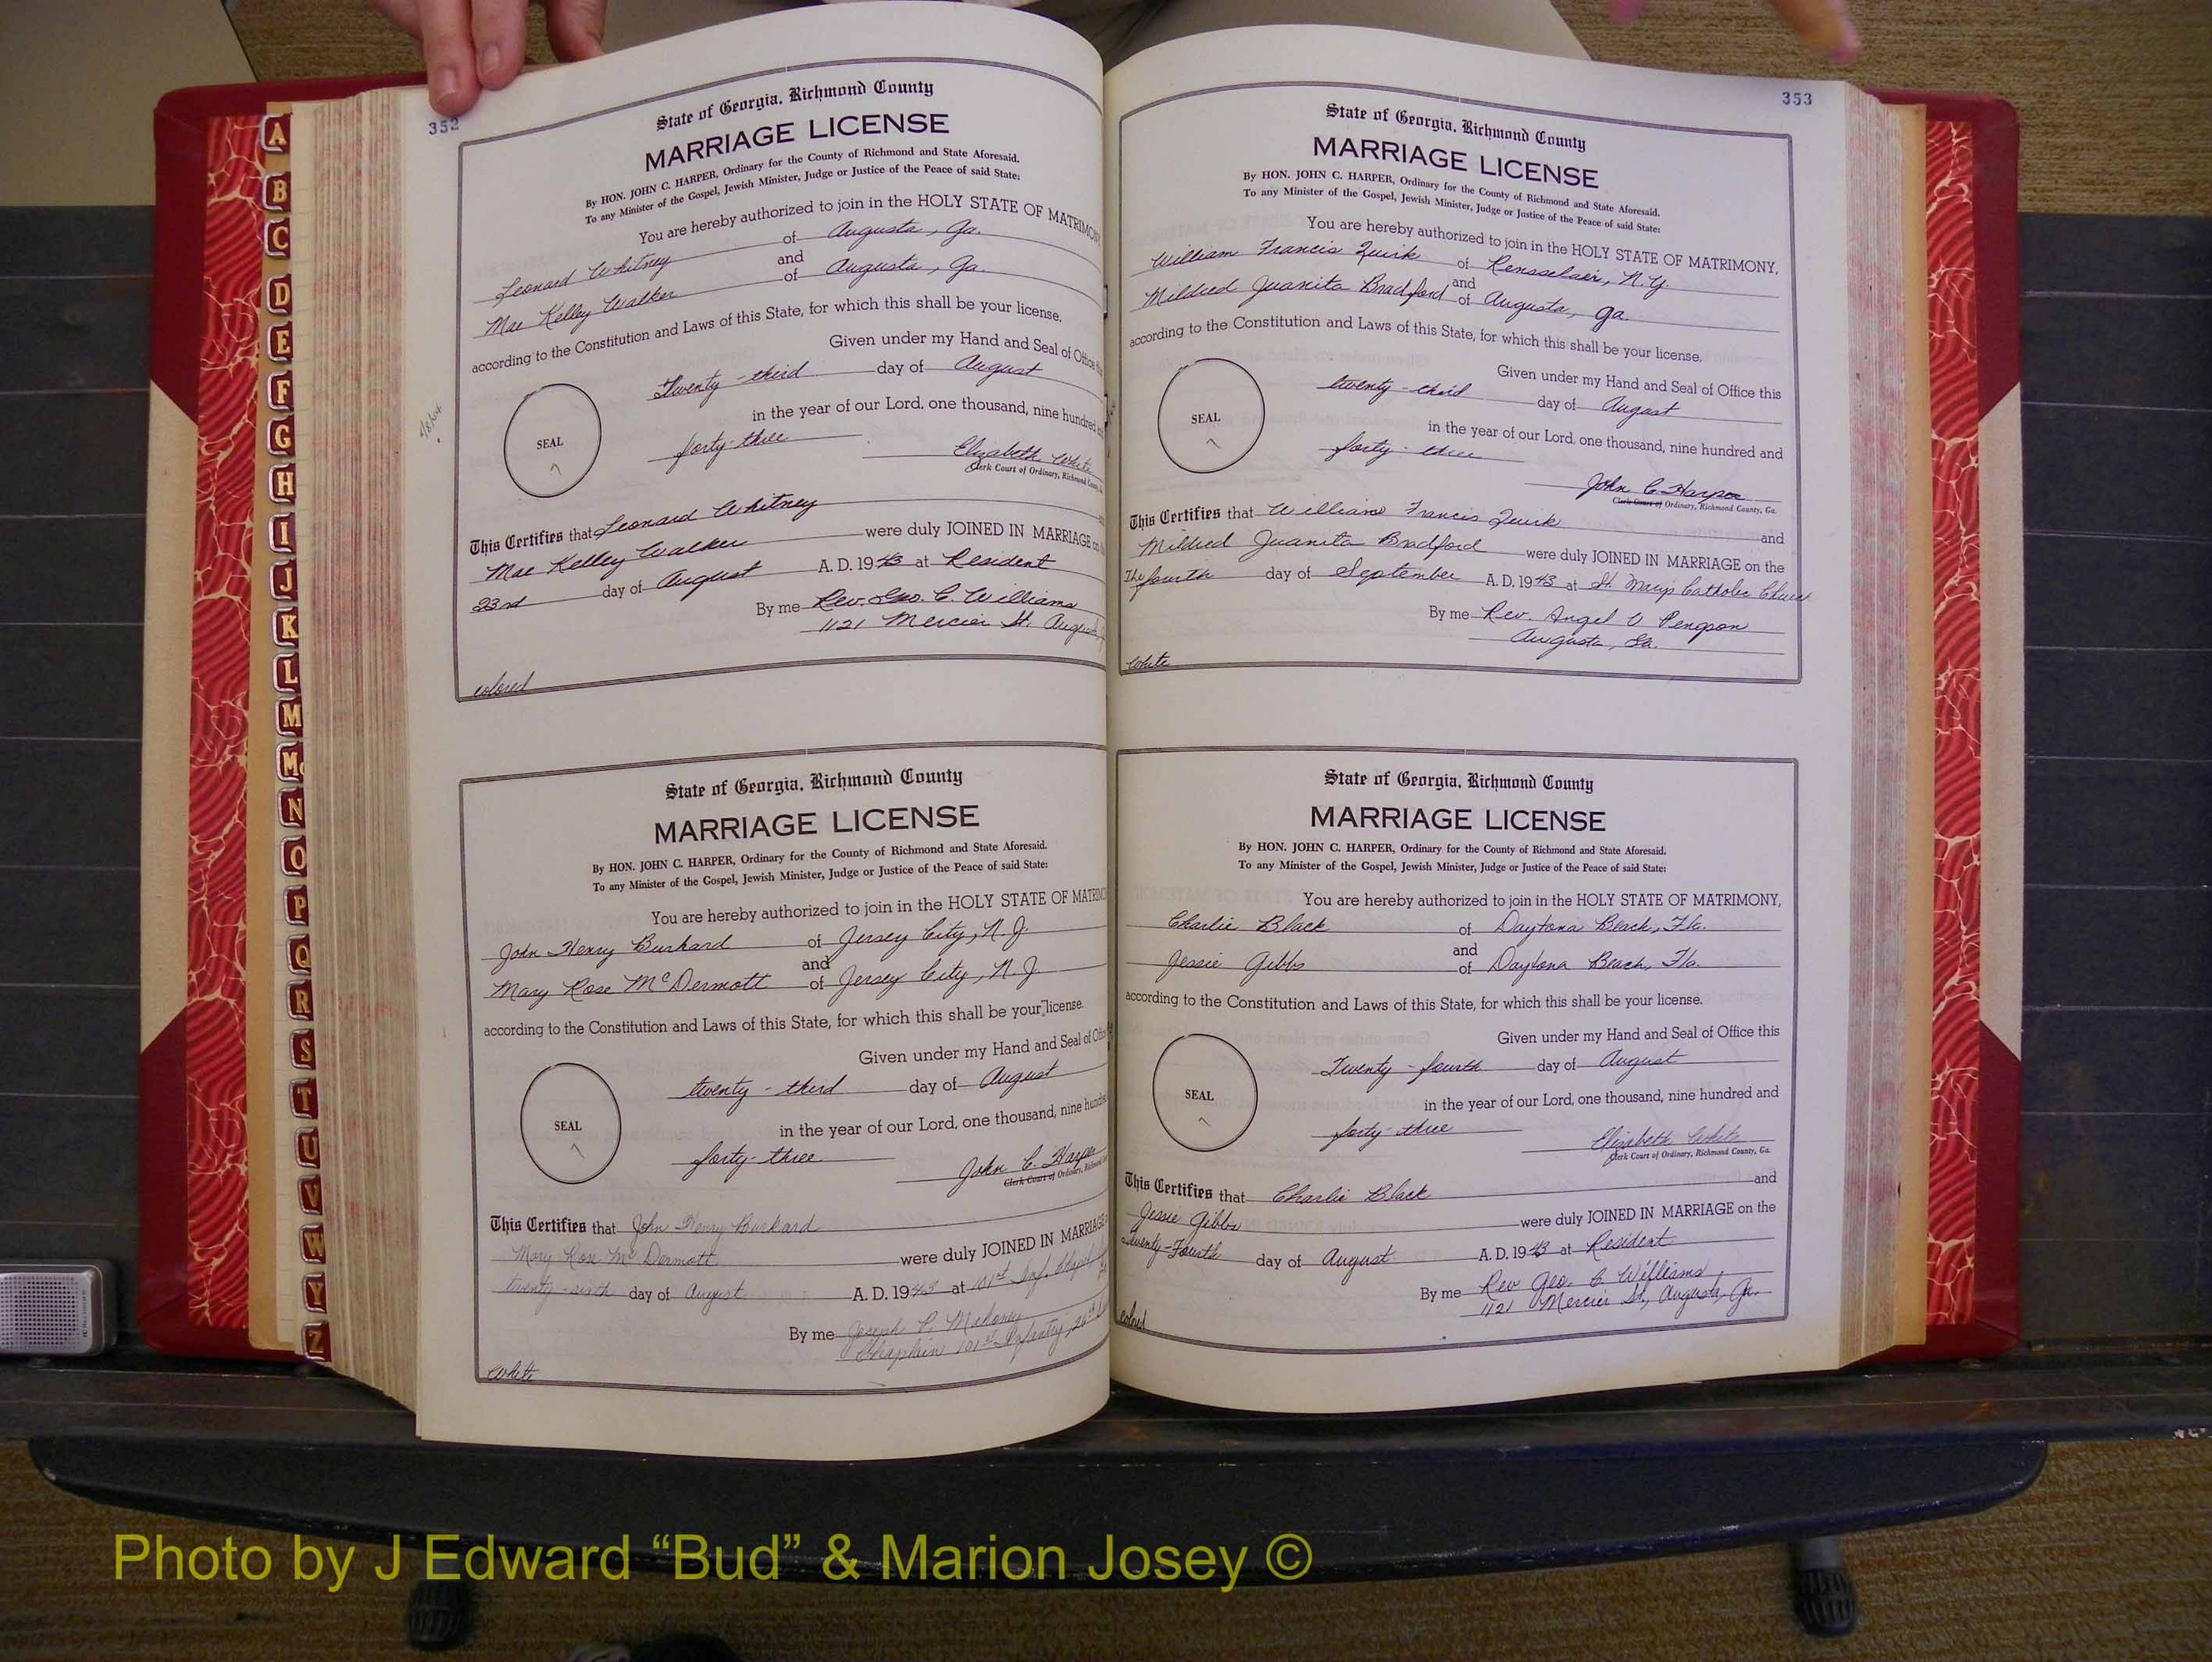 352
State of Georgia, Richmond County
MARRIAGE LICENSE
By HON. JOHN C. HARPER, Ordinary for the County of Richmond and State Aforesaid.
To any Minister of the Gospel, Jewish Minister, Judge or Justice of the Peace of said State:
You are hereby authorized to join in the HOLY STATE OF MATRIMONY
Leonard Whitney of Augusta, Ga.
and
Mae Kelley Walker of Augusta, Ga.
according to the Constitution and Laws of this State, for which this shall be your license.
Given under my Hand and Seal of Office this
Twenty-third day of August
in the year of our Lord, one thousand, nine hundred
forty-three
SEAL
Elizabeth White
Clerk Court of Ordinary, Richmond County, Ga.
This Certifies that Leonard Whitney
Mae Kelley Walker were duly JOINED IN MARRIAGE on
23rd day of August A. D. 1943 at Resident
By me Rev. Geo. C. Williams
1121 Mercier St. Augusta,
colored
State of Georgia, Richmond County
MARRIAGE LICENSE
By HON. JOHN C. HARPER, Ordinary for the County of Richmond and State Aforesaid.
To any Minister of the Gospel, Jewish Minister, Judge or Justice of the Peace of said State:
You are hereby authorized to join in the HOLY STATE OF MATRIMO
John Henry Burkard of Jersey City, N. J.
and
Mary Rose McDermott of Jersey City, N. J.
according to the Constitution and Laws of this State, for which this shall be your license.
Given under my Hand and Seal of Office
twenty-third day of August
in the year of our Lord, one thousand, nine hundred
forty-three
SEAL
John C. Harper
Clerk Court of Ordinary, Richmond
This Certifies that John Henry Burkard
Mary Rose McDermott were duly JOINED IN MARRIAGE
twenty-sixth day of August A. D. 1943 at 101st Inf. Chapel
By me Joseph P. Mahoney
Chaplain 101st Infantry, 26th
White
353
State of Georgia, Richmond County
MARRIAGE LICENSE
By HON. JOHN C. HARPER, Ordinary for the County of Richmond and State Aforesaid.
To any Minister of the Gospel, Jewish Minister, Judge or Justice of the Peace of said State:
You are hereby authorized to join in the HOLY STATE OF MATRIMONY,
William Francis Quirk of Rensselaer, N. Y.
and
Mildred Juanita Bradford of Augusta, Ga.
according to the Constitution and Laws of this State, for which this shall be your license.
Given under my Hand and Seal of Office this
twenty-third day of August
in the year of our Lord, one thousand, nine hundred and
forty-three
SEAL
John C. Harper
Clerk Court of Ordinary, Richmond County, Ga.
This Certifies that William Francis Quirk and
Mildred Juanita Bradford were duly JOINED IN MARRIAGE on the
The fourth day of September A. D. 1943 at St Marys Catholic Church
By me Rev. Angel V
Augusta, Ga.
White
State of Georgia, Richmond County
MARRIAGE LICENSE
By HON. JOHN C. HARPER, Ordinary for the County of Richmond and State Aforesaid.
To any Minister of the Gospel, Jewish Minister, Judge or Justice of the Peace of said State:
You are hereby authorized to join in the HOLY STATE OF MATRIMONY,
Charlie Black of Daytona Beach, Fla.
and
Jessie Gibbs of Daytona Beach, Fla.
according to the Constitution and Laws of this State, for which this shall be your license.
Given under my Hand and Seal of Office this
Twenty-fourth day of August
in the year of our Lord, one thousand, nine hundred and
forty-three
SEAL
Elizabeth White
Clerk Court of Ordinary, Richmond County, Ga.
This Certifies that Charlie Black and
Jessie Gibbs were duly JOINED IN MARRIAGE on the
Twenty-Fourth day of August A. D. 1943 at Resident
By me Rev Geo. C. Williams,
1121 Mercier St., Augusta, Ga.
colored
A
B
C
D
E
F
G
H
I
J
K
L
M
Mc
N
O
P
Q
R
S
T
U
V
W
Y
Z
Photo by J Edward “Bud” & Marion Josey ©